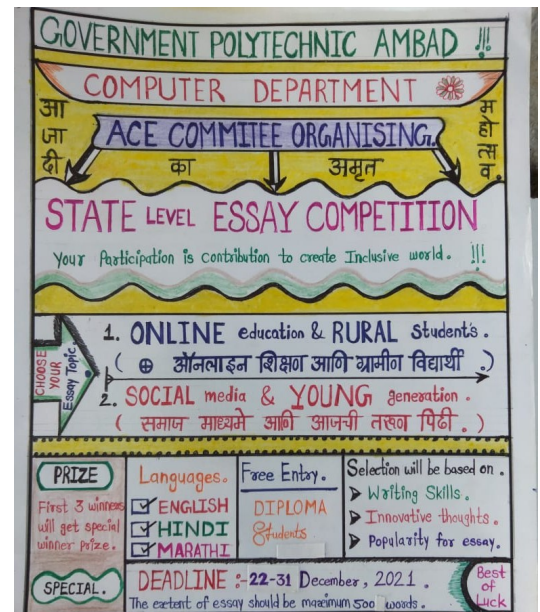 GOVERNMENT POLYTECHNIC AMBAD !!!
COMPUTER DEPARTMENT
आजादी
का
अमृत
महोत्सव.
ACE COMMITEE ORGANISING.
STATE LEVEL ESSAY COMPETITION
Your Participation is contribution to create Inclusive world. !!!
CHOOSE YOUR Essay Topic.
1. ONLINE education & RURAL Student's.
( ⊕ ऑनलाइन शिक्षण आणि ग्रामीण विद्यार्थी .)
2. SOCIAL media & YOUNG generation.
( समाज माध्यमे आणि आजची तरुण पिढी . )
PRIZE
First 3 winners
will get special
winner prize.
SPECIAL.
Languages.
ENGLISH
HINDI
MARATHI
Free Entry.
DIPLOMA
Students
Selection will be based on .
Writing Skills.
Innovative thoughts.
Popularity for essay.
DEADLINE :-22-31 December, 2021.
The extent of essay should be maximum 500 words.
Best
of
Luck